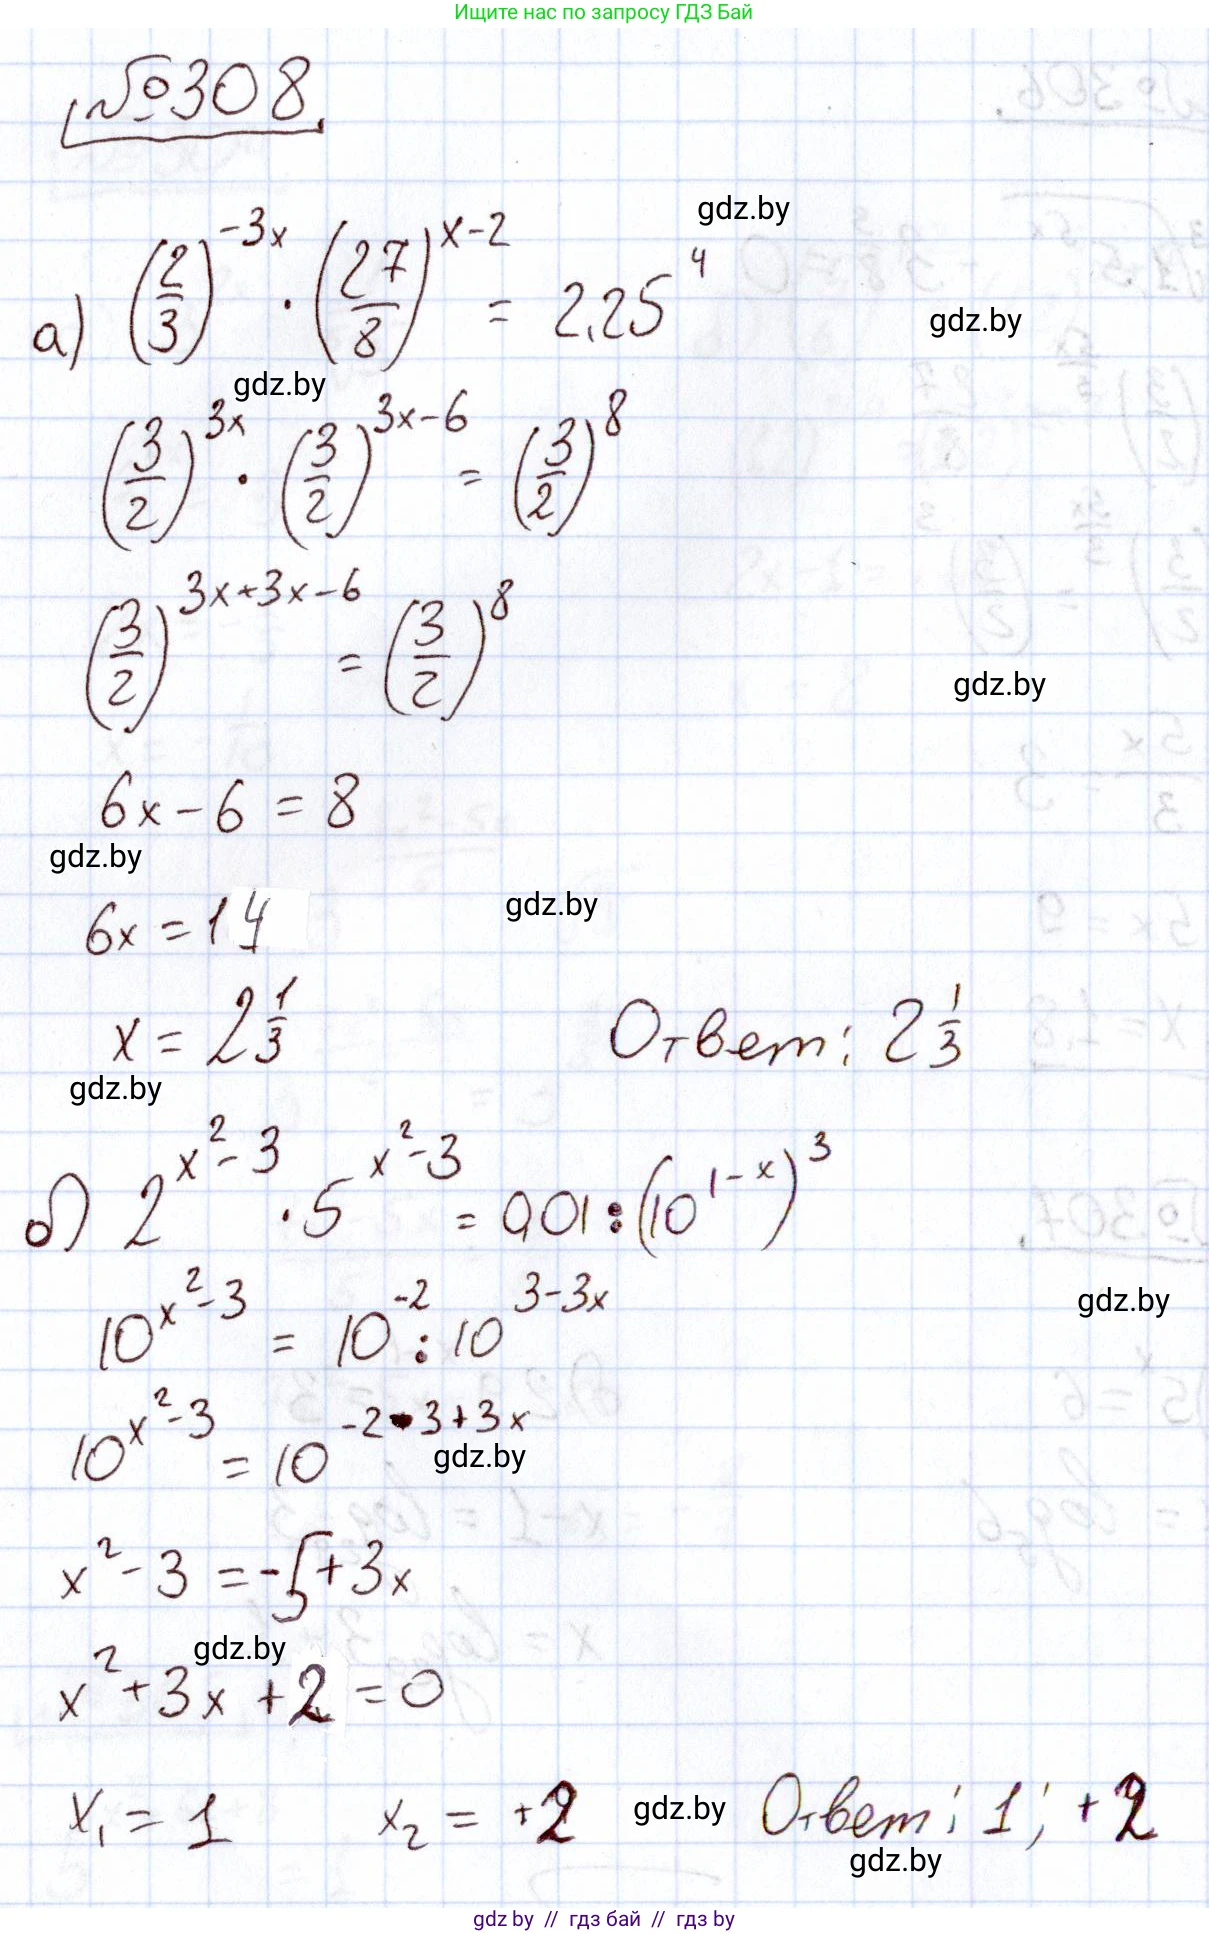 Ищите нас по запросу ГДЗ Бай
№308
gdz.by
а) (2/3)^(-3x) · (27/8)^(x-2) = 2,25^4
gdz.by
gdz.by
(3/2)^(3x) · (3/2)^(3x-6) = (3/2)^8
(3/2)^(3x+3x-6) = (3/2)^8
gdz.by
6x-6 = 8
gdz.by
gdz.by
6x = 14
x = 2 1/3 Ответ: 2 1/3
gdz.by
б) 2^(x²-3) · 5^(x²-3) = 0,01 : (10^(1-x))^3
gdz.by
10^(x²-3) = 10^(-2) : 10^(3-3x)
10^(x²-3) = 10^(-2-3+3x)
gdz.by
x²-3 = -5+3x
gdz.by
x²+3x+2 = 0
x₁ = 1 x₂ = +2 gdz.by Ответ: 1; +2
gdz.by
gdz by // гдз бай // гдз by